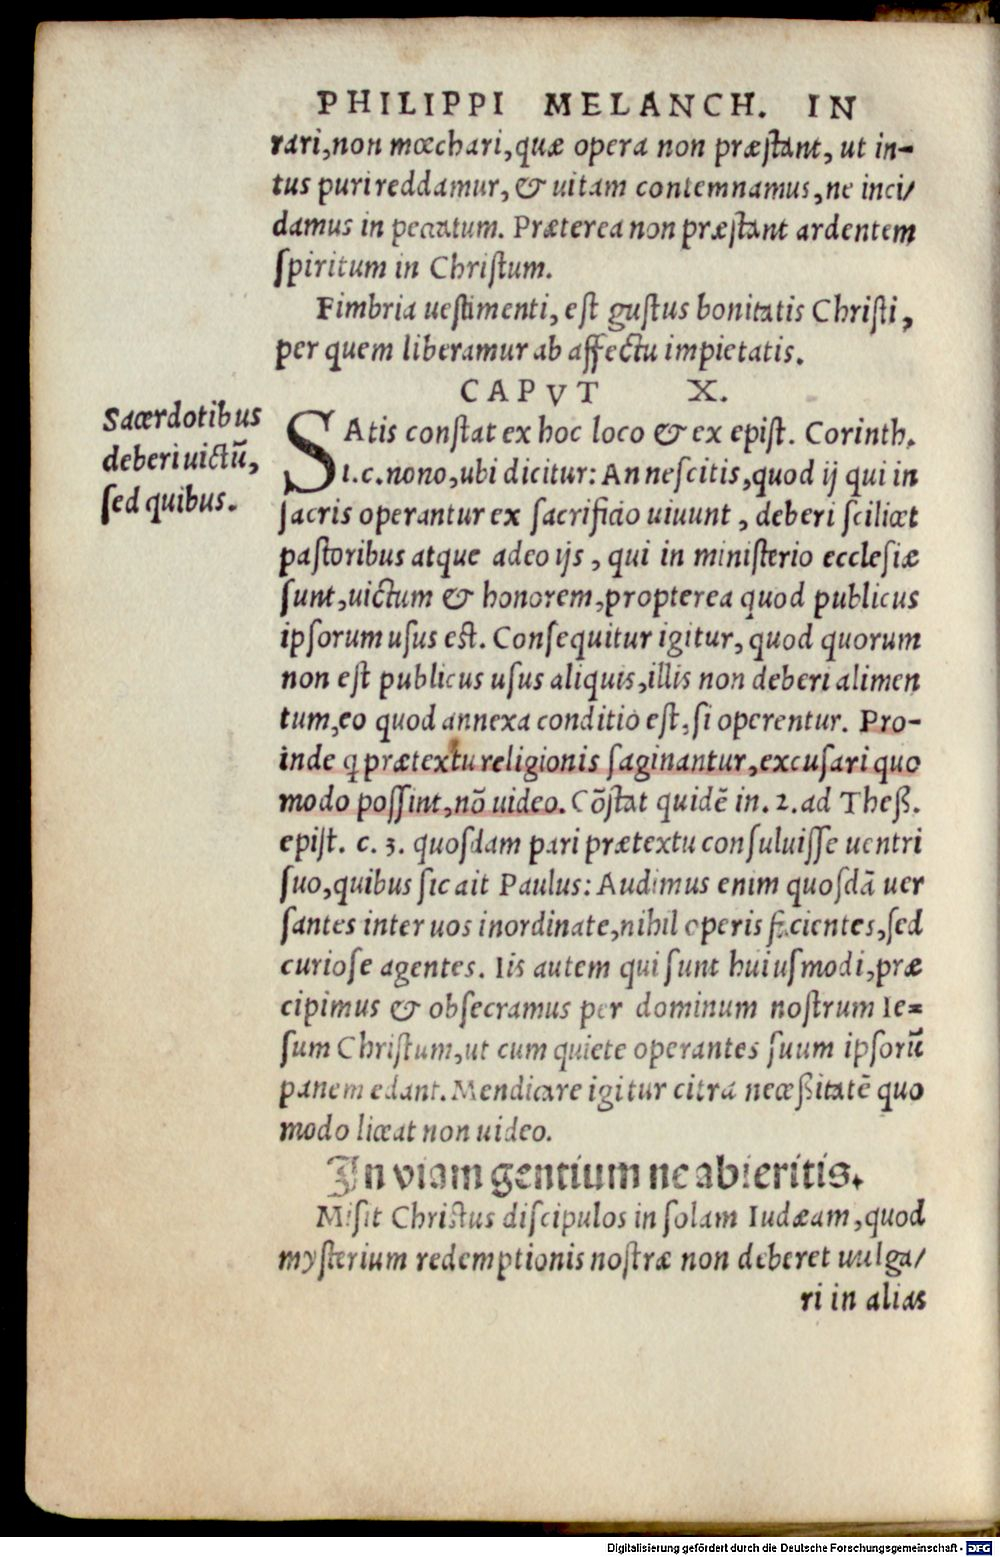 PHILIPPI MELANCH. IN
rari, non mœchari, quæ opera non præstant, ut in-
tus puri reddamur, & uitam contemnamus, ne inci/
damus in peccatum. Præterea non præstant ardentem
spiritum in Christum.
Fimbria uestimenti, est gustus bonitatis Christi,
per quem liberamur ab affectu impietatis.
CAPVT X.
Sacerdotibus
deberi uictũ,
sed quibus.
SAtis constat ex hoc loco & ex epist. Corinth.
1. c. nono, ubi dicitur: An nescitis, quod ij qui in
sacris operantur ex sacrificio uiuunt, deberi scilicet
pastoribus atque adeo ijs, qui in ministerio ecclesiæ
sunt, uictum & honorem, propterea quod publicus
ipsorum usus est. Consequitur igitur, quod quorum
non est publicus usus aliquis, illis non deberi alimen
tum, eo quod annexa conditio est, si operentur. Pro-
inde q prætextu religionis saginantur, excusari quo
modo possint, nõ uideo. Cõstat quidẽ in. 2. ad Theß.
epist. c. 3. quosdam pari prætextu consuluisse uentri
suo, quibus sic ait Paulus: Audimus enim quosdã uer
santes inter uos inordinate, nihil operis facientes, sed
curiose agentes. Iis autem qui sunt huiusmodi, præ
cipimus & obsecramus per dominum nostrum Ie=
sum Christum, ut cum quiete operantes suum ipsorũ
panem edant. Mendicare igitur citra neceßitatẽ quo
modo liceat non uideo.
In viam gentium ne abieritis.
Misit Christus discipulos in solam Iudæam, quod
mysterium redemptionis nostræ non deberet uulga/
ri in alias
Digitalisierung gefördert durch die Deutsche Forschungsgemeinschaft - DFG